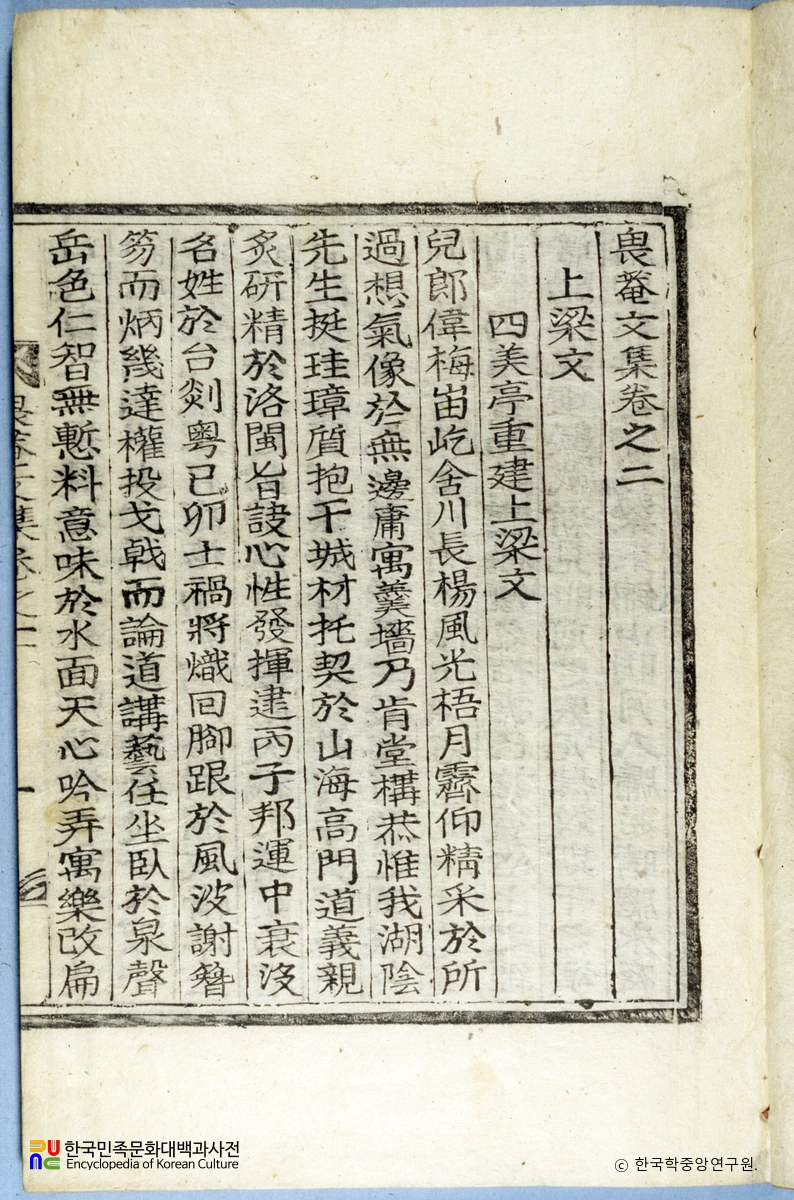 畏菴文集卷之二
上梁文
四美亭重建上梁文
兒郎偉梅宙屹舍川長楊風光梧月霽仰精采於所
過想氣像於無邊庸寓羹墻乃肯堂構恭惟我湖陰
先生挺珪璋質抱干城材托契於山海高門道義親
炙硏精於洛閩旨訣心性發揮逮丙子邦運中衰沒
名姓於台剡粤己卯士禍將熾回脚跟於風波謝簪
笏而炳幾達權投戈戟而論道講藝任坐臥於泉聲
岳色仁智無慙料意味於水面天心吟弄寓樂改扁
畏菴文集卷之二
一
한국민족문화대백과사전
Encyclopedia of Korean Culture
ⓒ 한국학중앙연구원.